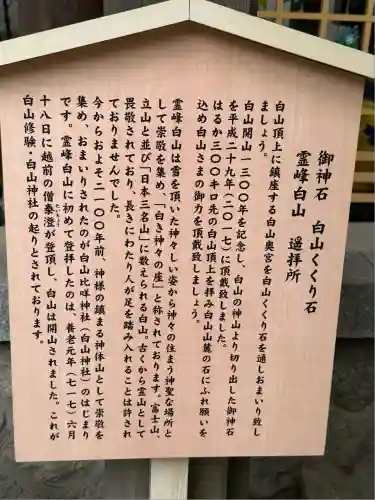 御神石　白山くくり石
霊峰白山　遥拝所
白山頂上に鎮座する白山奥宮を白山くくり石を通しおまいり致し
ましょう。
白山開山一三〇〇年を記念し、白山の神山より切り出した御神石
を平成二十九年（二〇一七）に頂戴致しました。
はるか三〇〇キロ先の白山頂上を拝み白山山麓の石にふれ願いを
込め白山さまの御力を頂戴致しましょう。
霊峰白山は雪を頂いた神々しい姿から神々の住まう神聖な場所と
して崇敬を集め、「白き神々の座」と称されております。富士山、
立山と並び「日本三名山」に数えられる白山。古くから霊山として
畏敬されており、長きにわたり人が足を踏み入れることは許され
ておりませんでした。
今からおよそ二一〇〇年前、神様の鎮まる神体山として崇敬を
集め、おまいりされたのが白山比咩神社（白山神社）のはじまり
です。霊峰白山に初めて登拝したのは、養老元年（七一七）六月
十八日に越前の僧泰澄が登頂し、白山は開山されました。これが
白山修験・白山神社の起りとされております。